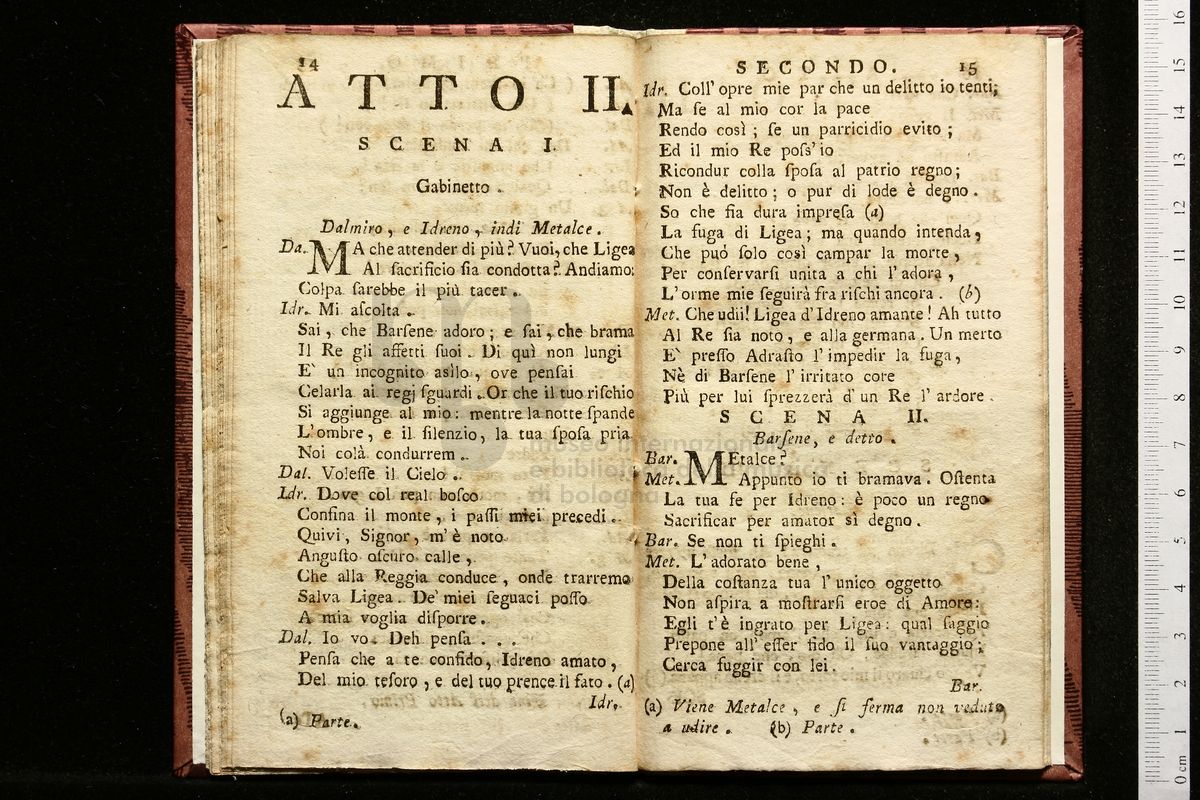 14
ATTO II.
SCENA I.
Gabinetto.
Dalmiro, e Idreno, indi Metalce.
Da. MA che attender di più? Vuoi, che Ligea
Al ſacrificio ſia condotta? Andiamo:
Colpa ſarebbe il più tacer.
Idr. Mi aſcolta.
Sai, che Barſene adoro; e ſai, che brama
Il Re gli affetti ſuoi. Di quì non lungi
E' un incognito asilo, ove penſai
Celarla ai regj ſguardi. Or che il tuo riſchio
Si aggiunge al mio: mentre la notte ſpande
L'ombre, e il ſilenzio, la tua ſpoſa pria
Noi colà condurrem.
Dal. Voleſſe il Cielo.
Idr. Dove col real boſco
Confina il monte, i paſſi miei precedi.
Quivi, Signor, m'è noto
Anguſto oſcuro calle,
Che alla Reggia conduce, onde trarremo
Salva Ligea. De' miei ſeguaci poſſo
A mia voglia diſporre.
Dal. Io vo. Deh penſa . . .
Penſa che a te confido, Idreno amato,
Del mio teſoro, e del tuo prence il fato. (a)
Idr.
(a) Parte.
SECONDO. 15
Idr. Coll' opre mie par che un delitto io tenti;
Ma ſe al mio cor la pace
Rendo così; ſe un parricidio evito;
Ed il mio Re poſs'io
Ricondur colla ſpoſa al patrio regno;
Non è delitto; o pur di lode è degno.
So che fia dura impreſa (a)
La fuga di Ligea; ma quando intenda,
Che puó ſolo così campar la morte,
Per conſervarſi unita a chi l'adora,
L'orme mie ſeguirà fra riſchi ancora. (b)
Met. Che udii! Ligea d'Idreno amante! Ah tutto
Al Re ſia noto, e alla germana. Un merto
E' preſſo Adraſto l'impedir la fuga,
Nè di Barſene l'irritato core
Più per lui ſprezzerà d'un Re l'ardore.
SCENA II.
Barſene, e detto.
Bar. MEtalce?
Met. Appunto io ti bramava. Oſtenta
La tua fe per Idreno: è poco un regno
Sacrificar per amator sì degno.
Bar. Se non ti ſpieghi.
Met. L'adorato bene,
Della coſtanza tua l'unico oggetto
Non aſpira a moſtrarſi eroe di Amore:
Egli t'è ingrato per Ligea: qual ſaggio
Prepone all'eſſer fido il ſuo vantaggio;
Cerca fuggir con lei.
Bar.
(a) Viene Metalce, e ſi ferma non veduto
a udire. (b) Parte.
museo internazionale
e biblioteca della musica
di bologna
0 cm 1 2 3 4 5 6 7 8 9 10 11 12 13 14 15 16